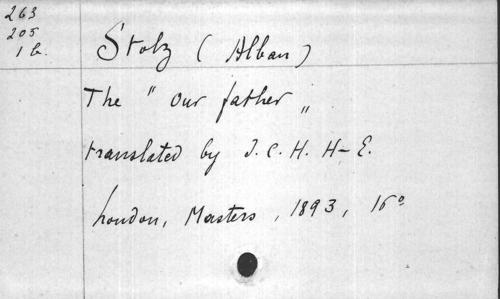 263
205
1 b.
Stolz (Alban)
The " our father "
translated by J. C. H. H-E.
London, Masters, 1893, 16°